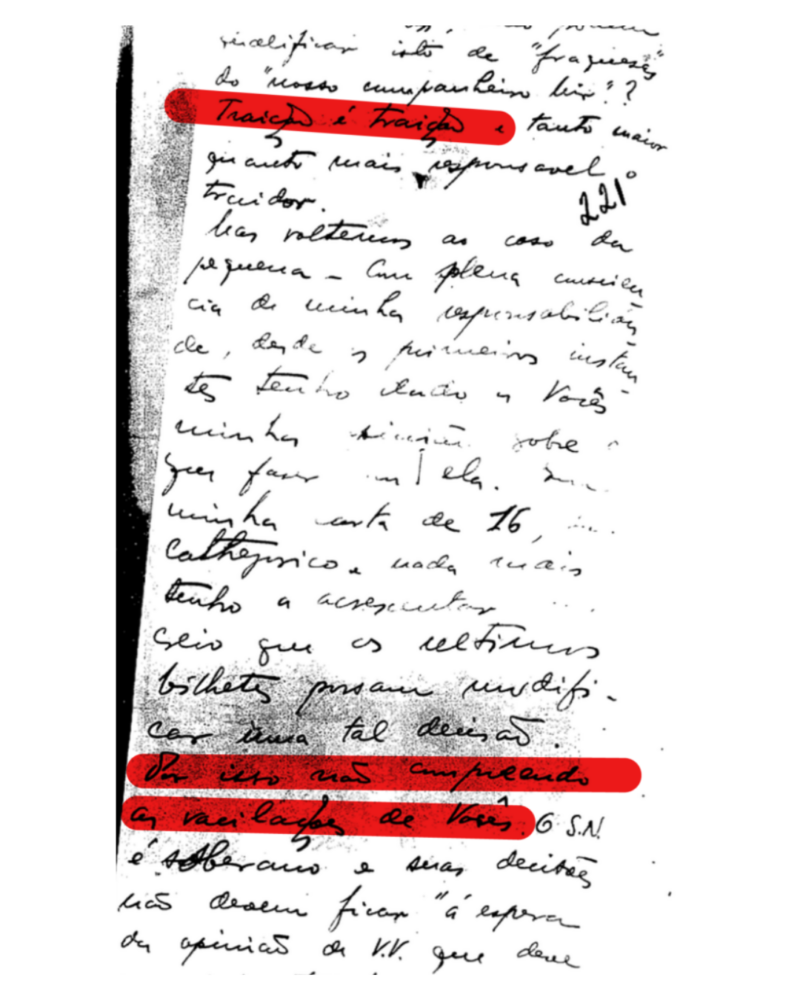 qualificar isto de "fraqueses"
do "nosso companheiro Mir."?
Traição é traição e tanto maior
quanto mais responsavel o
traidor.
221
Mas voltemos ao caso da
pequena - Com plena conscien
cia de minha responsabilida
de, desde os primeiros instan
tes tenho dado a Vocês
minha opinião sobre o
que fazer com ela. Em
minha carta de 16, sou
cathegorico e nada mais
tenho a acrescentar
creio que os ultimos
bilhetes possam modifi-
car uma tal decisão.
Por isso não compreendo
as vacilações de Vocês. O S.N.
é soberano e suas decisões
não devem ficar "á espera
da opinião de V.V. que deve